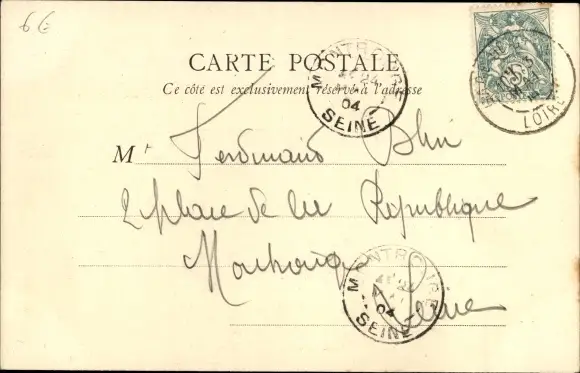 6€
CARTE POSTALE
Ce côté est exclusivement réservé à l'adresse
MONTROUGE
24
04
SEINE
LOIRET
Mr Ferdinand Blin
2 place de la République
Montrouge
Seine
MONTROUGE
24
04
SEINE